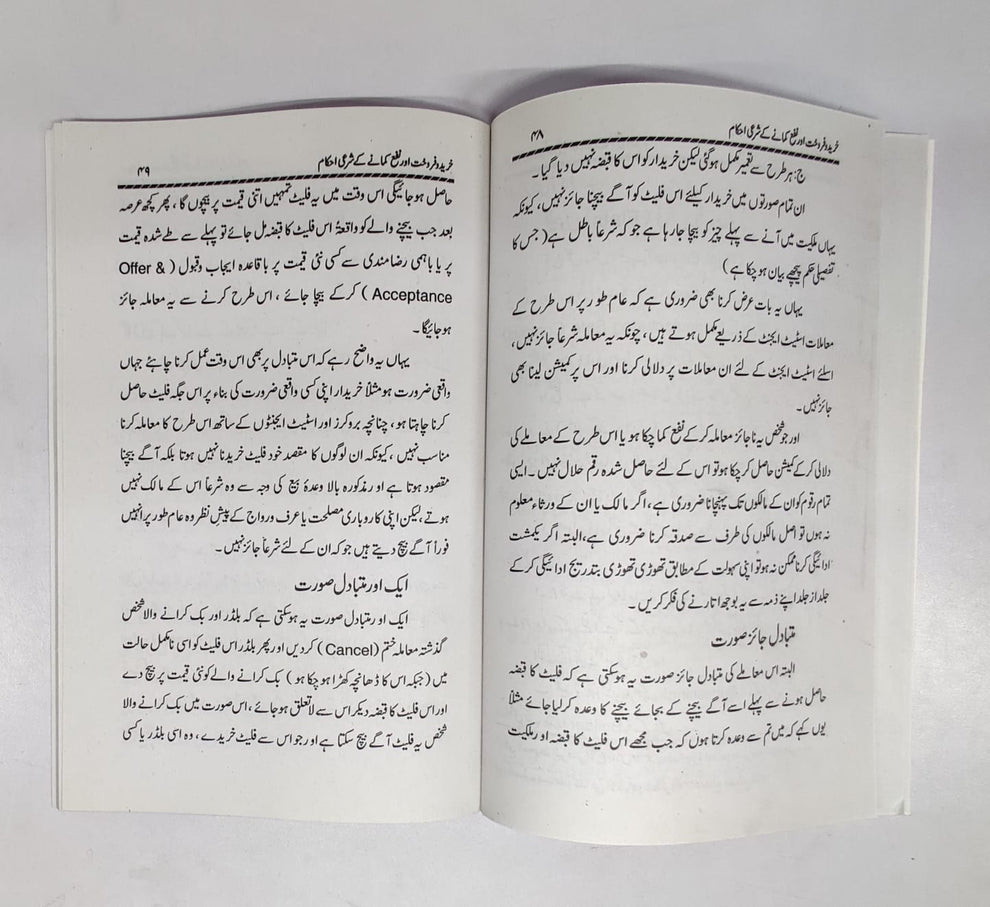 ۴۸ خرید و فروخت اور نفع کمانے کے شرعی احکام
ج: ہر طرح سے تعمیر مکمل ہوگئی لیکن خریدار کو اس کا قبضہ نہیں دیا گیا۔
ان تمام صورتوں میں خریدار کیلئے اس فلیٹ کو آگے بیچنا جائز نہیں، کیونکہ
یہاں ملکیت میں آنے سے پہلے چیز کو بیچا جارہا ہے جو کہ شرعاً باطل ہے (جس کا
تفصیلی حکم پیچھے بیان ہوچکا ہے)
یہاں یہ بات عرض کرنا بھی ضروری ہے کہ عام طور پر اس طرح کے
معاملات اسٹیٹ ایجنٹ کے ذریعے مکمل ہوتے ہیں، چونکہ یہ معاملہ شرعاً جائز نہیں،
اسلئے اسٹیٹ ایجنٹ کے لئے ان معاملات پر دلالی کرنا اور اس پر کمیشن لینا بھی
جائز نہیں۔
اور جو شخص یہ ناجائز معاملہ کرکے نفع کما چکا ہو یا اس طرح کے معاملے کی
دلالی کرکے کمیشن حاصل کرچکا ہو تو اس کے لئے حاصل شدہ رقم حلال نہیں۔ ایسی
تمام رقوم کو ان کے مالکوں تک پہنچانا ضروری ہے، اگر مالک یا ان کے ورثاء معلوم
نہ ہوں تو اصل مالکوں کی طرف سے صدقہ کرنا ضروری ہے، البتہ اگر یکمشت
ادائیگی کرنا ممکن نہ ہو تو اپنی سہولت کے مطابق تھوڑی تھوڑی بتدریج ادائیگی کرکے
جلد از جلد اپنے ذمہ سے یہ بوجھ اتارنے کی فکر کریں۔
متبادل جائز صورت
البتہ اس معاملے کی متبادل جائز صورت یہ ہوسکتی ہے کہ فلیٹ کا قبضہ
حاصل ہونے سے پہلے اسے آگے بیچنے کے بجائے بیچنے کا وعدہ کرلیا جائے مثلاً
یوں کہے کہ میں تم سے وعدہ کرتا ہوں کہ جب مجھے اس فلیٹ کا قبضہ اور ملکیت
خرید و فروخت اور نفع کمانے کے شرعی احکام ۴۹
حاصل ہوجائیگی اس وقت میں یہ فلیٹ تمہیں اتنی قیمت پر بیچوں گا، پھر کچھ عرصہ
بعد جب بیچنے والے کو واقعۃً اس فلیٹ کا قبضہ مل جائے تو پہلے سے طے شدہ قیمت
پر یا باہمی رضامندی سے کسی نئی قیمت پر باقاعدہ ایجاب وقبول (Offer &
Acceptance) کرکے بیچا جائے، اس طرح کرنے سے یہ معاملہ جائز
ہوجائیگا۔
یہاں یہ واضح رہے کہ اس متبادل پر بھی اس وقت عمل کرنا چاہئے جہاں
واقعی ضرورت ہو مثلاً خریدار اپنی کسی واقعی ضرورت کی بناء پر اس جگہ فلیٹ حاصل
کرنا چاہتا ہو، چنانچہ بروکرز اور اسٹیٹ ایجنٹوں کے ساتھ اس طرح کا معاملہ کرنا
مناسب نہیں، کیونکہ ان لوگوں کا مقصد خود فلیٹ خریدنا نہیں ہوتا بلکہ آگے بیچنا
مقصود ہوتا ہے اور مذکورہ بالا وعدۂ بیع کی وجہ سے وہ شرعاً اس کے مالک نہیں
ہوتے، لیکن اپنی کاروباری مصلحت یا عرف ورواج کے پیش نظر وہ عام طور پر انہیں
فوراً آگے بیچ دیتے ہیں جو کہ ان کے لئے شرعاً جائز نہیں۔
ایک اور متبادل صورت
ایک اور متبادل صورت یہ ہوسکتی ہے کہ بلڈر اور بک کرانے والا شخص
گذشتہ معاملہ ختم (Cancel) کردیں اور پھر بلڈر اس فلیٹ کو اسی نامکمل حالت
میں (جبکہ اس کا ڈھانچہ کھڑا ہوچکا ہو) بک کرانے والے کو نئی قیمت پر بیچ دے
اور اس فلیٹ کا قبضہ دیکر اس سے لاتعلق ہوجائے، اس صورت میں بک کرانے والا
شخص یہ فلیٹ آگے بیچ سکتا ہے اور جو اس سے فلیٹ خریدے، وہ اسی بلڈر یا کسی